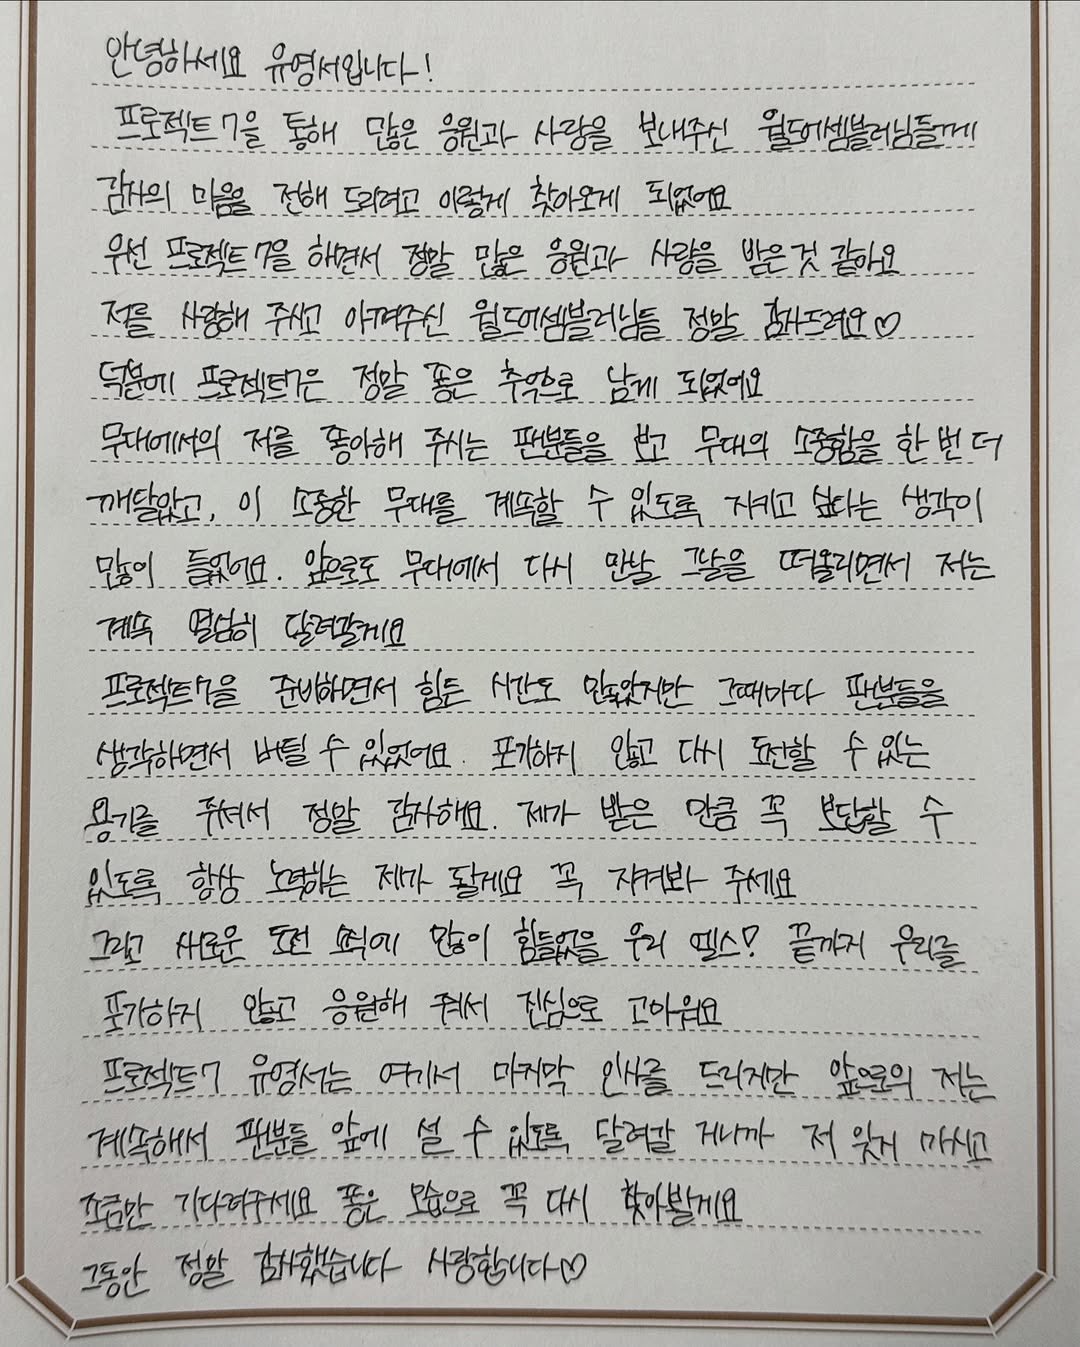 안녕하세요 유영서입니다!
프로젝트7을 통해 많은 응원과 사랑을 보내주신 월드어셈블러님들께
감사의 마음을 전해 드리려고 이렇게 찾아오게 되었어요
우선 프로젝트7을 하면서 정말 많은 응원과 사랑을 받은것 같아요
저를 사랑해 주시고 아껴주신 월드어셈블러님들 정말 감사드려요♡
덕분에 프로젝트7은 정말 좋은 추억으로 남게 되었어요
무대에서의 저를 좋아해 주시는 팬분들을 보고 무대의 소중함을 한번 더
깨달았고, 이 소중한 무대를 계속할 수 있도록 지키고 싶다는 생각이
많이 들었어요. 앞으로도 무대에서 다시 만날 그날을 떠올리면서 저는
계속 열심히 달려갈게요
프로젝트7을 준비하면서 힘든 시간도 많았지만 그때마다 팬분들을
생각하면서 버틸 수 있었어요. 포기하지 않고 다시 도전할 수 있는
용기를 주셔서 정말 감사해요. 제가 받은 만큼 꼭 보답할 수
있도록 항상 노력하는 제가 될게요 꼭 지켜봐 주세요
그리고 새로운 도전 소식에 많이 힘들었을 우리 엘스! 끝까지 우리를
포기하지 않고 응원해 줘서 진심으로 고마워요
프로젝트7 유영서는 여기서 마지막 인사를 드리지만 앞으로의 저는
계속해서 팬분들 앞에 설 수 있도록 달려갈 거니까 저 잊지 마시고
조금만 기다려주세요 좋은 모습으로 꼭 다시 찾아뵐게요
그동안 정말 감사했습니다 사랑합니다♡